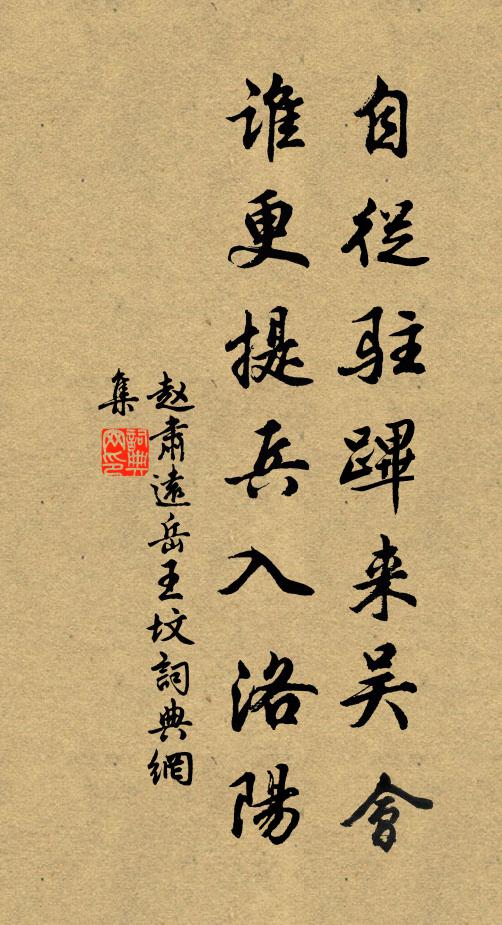 自從駐蹕来吴會
谁更提兵入洛陽
赵肃遠岳王坟詞典網
集
詞典網印